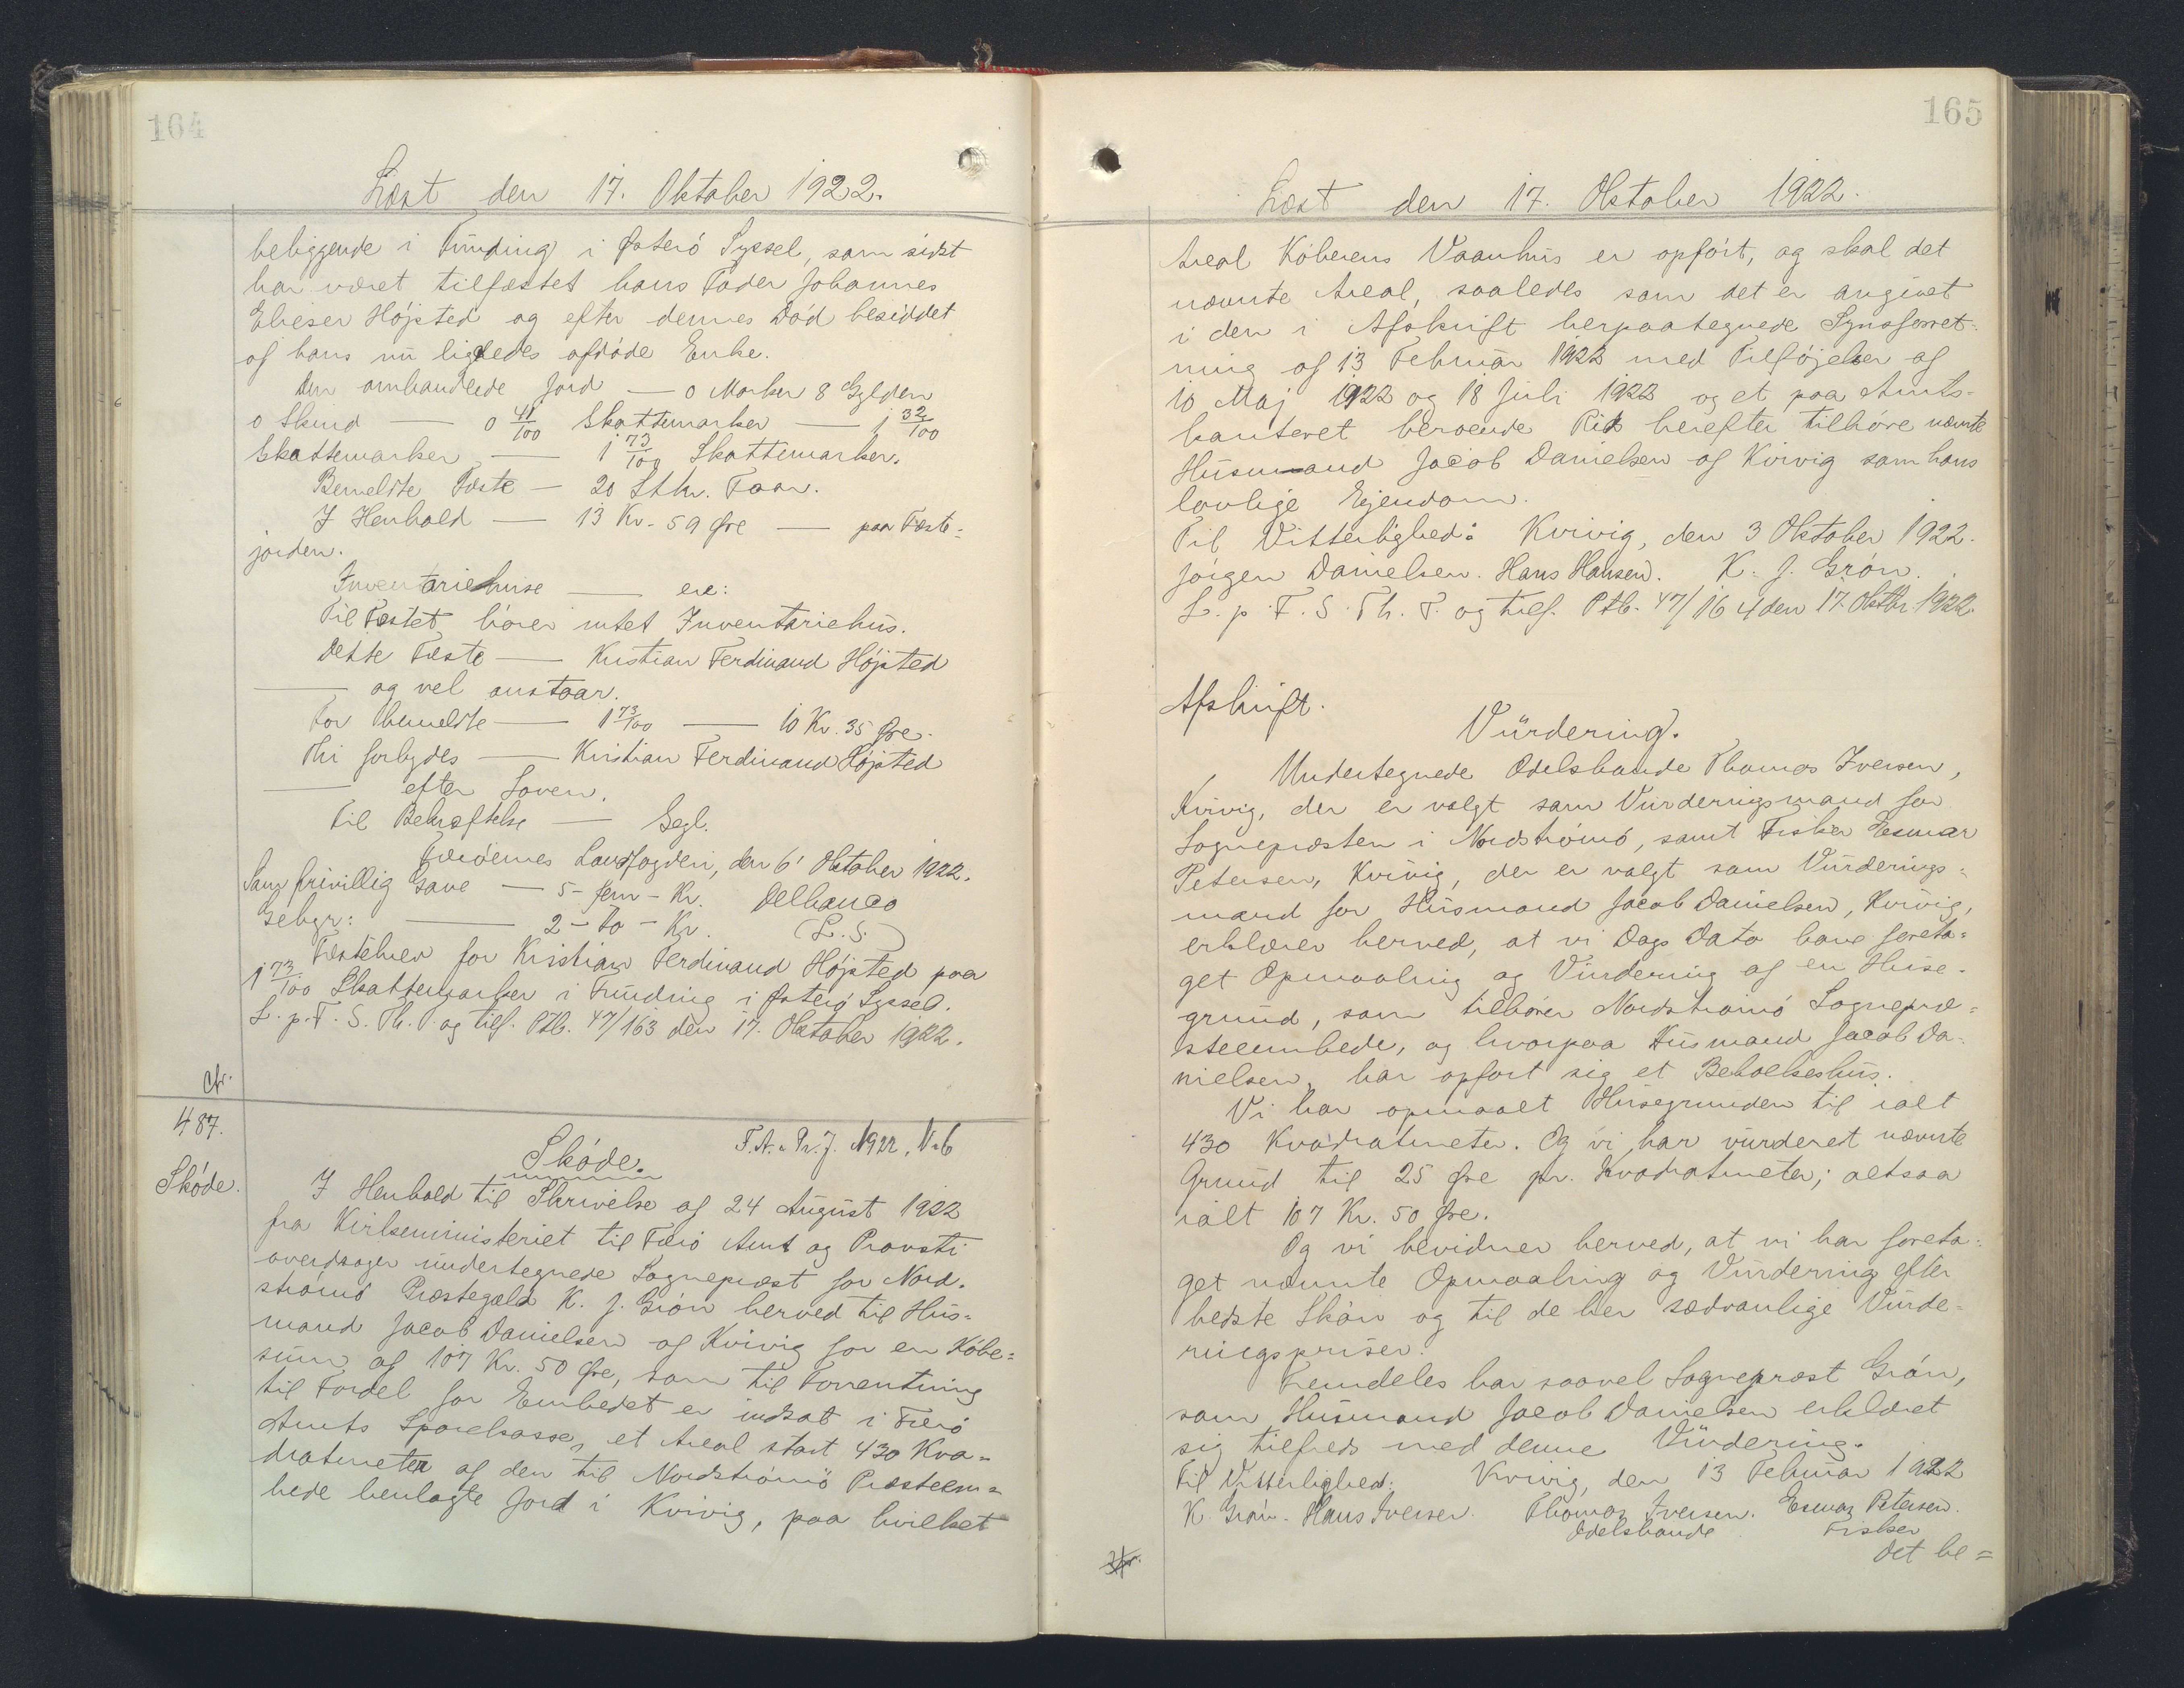 164
Læst den 17. Oktober 1922.
beliggende i Funding i Østerö Syssel, som sidst
har været tilfæstet hans Fader Johannes
Elieser Højsted og efter dennes Död besiddet
af hans nu ligeledes afdöde Enke.
Den omhandlede Jord — 0 Marker 8 Gylden
0 Skind — 0 41/100 Skattemarker — 1 32/100
Skattemarker — 1 73/100 Skattemarker.
Bemeldte Fæste — 20 Stkr. Faar.
I Henhold — 13 Kr. 59 Øre — paa Fæste=
jorden.
Inventariehuse — ere:
Til Fæstet hörer intet Inventariehus.
Dette Fæste — Kristian Ferdinand Højsted
— og vel anstaar.
For bemeldte — 1 73/100 — 10 Kr. 35 Øre.
Thi forbydes — Kristian Ferdinand Højsted
— efter Loven.
Til Bekræftelse — Segl.
Færöernes Landfogderi, den 6' Oktober 1922.
Sum frivillig Gave — 5 - fem - Kr. Delbanco
Gebyr: — 2 - to - Kr. (L.S.)
Fæstebrev for Kristian Ferdinand Højsted paa
1 73/100 Skattemarker i Funding i Østerö Syssel.
L. p. F. S. Th. P. og tilf. Ptb. 47/163 den 17. Oktober 1922.
487.
Sköde. F.A. Pr. J. 1922, N. 6
Sköde.
I Henhold til Skrivelse af 24 August 1922
fra Kirkeministeriet til Færö Amt og Provsti
overdrager undertegnede Sognepræst for Nord.
strömö Præstegæld K. J. Grön herved til Hus=
mand Jacob Danielsen af Kvivig for en Köbe=
sum af 107 Kr. 50 Øre, som til Forrentning
til Fordel for Embedet er indsat i Færö
Amts Sparekasse, et Areal stort 430 Kva=
dratmeter af den til Nordströmö Præsteem=
bede henlagte Jord i Kvivig, paa hvilket
165
Læst den 17. Oktober 1922.
Areal Köberens Vaanhus er opfört, og skal det
nævnte Areal, saaledes som det er angivet
i den i Afskrift herpaategnede Synsforret=
ning af 13 Februar 1922 med Tilföjelser af
10 Maj 1922 og 18 Juli 1922 og et paa Amts=
kontoret beroende Rids herefter tilhöre nævnte
Husmand Jacob Danielsen af Kvivig som hans
lovlige Ejendom.
Til Vitterlighed: Kvivig, den 3 Oktober 1922.
Jörgen Danielsen. Hans Hansen. K. J. Grön.
L. p. F. S. Th. P. og tilf. Ptb. 47/164 den 17. Oktbr. 1922.
Afskrift.
Vurdering.
Undertegnede Odelsbonde Thomas Iversen,
Kvivig, der er valgt som Vurderingsmand for
Sognepræsten i Nordströmö, samt Fisker Esmar
Petersen, Kvivig, der er valgt som Vurderings=
mand for Husmand Jacob Danielsen, Kvivig,
erklærer herved, at vi Dags Dato have foreta=
get Opmaaling og Vurdering af en Huse=
grund, som tilhörer Nordströmö Sognepræ=
steembede, og hvorpaa Husmand Jacob Da=
nielsen, har opfört sig et Beboelseshus.
Vi har opmaalt Husegrunden til ialt
430 Kvadratmeter. Og vi har vurderet nævnte
Grund til 25 Øre pr. Kvadratmeter; altsaa
ialt 107 Kr. 50 Øre.
Og vi bevidner herved, at vi har foreta=
get nævnte Opmaaling og Vurdering efter
bedste Skön og til de her sædvanlige Vurde=
ringspriser.
Fremdeles har saavel Sognepræst Grön,
som Husmand Jacob Danielsen erklæret
sig tilfreds med denne Vurdering.
Til Vitterlighed: Kvivig, den 13 Februar 1922
K. Grön. Hans Iversen. Thomas Iversen. Esmar Petersen.
Odelsbonde Fisker
Det be=